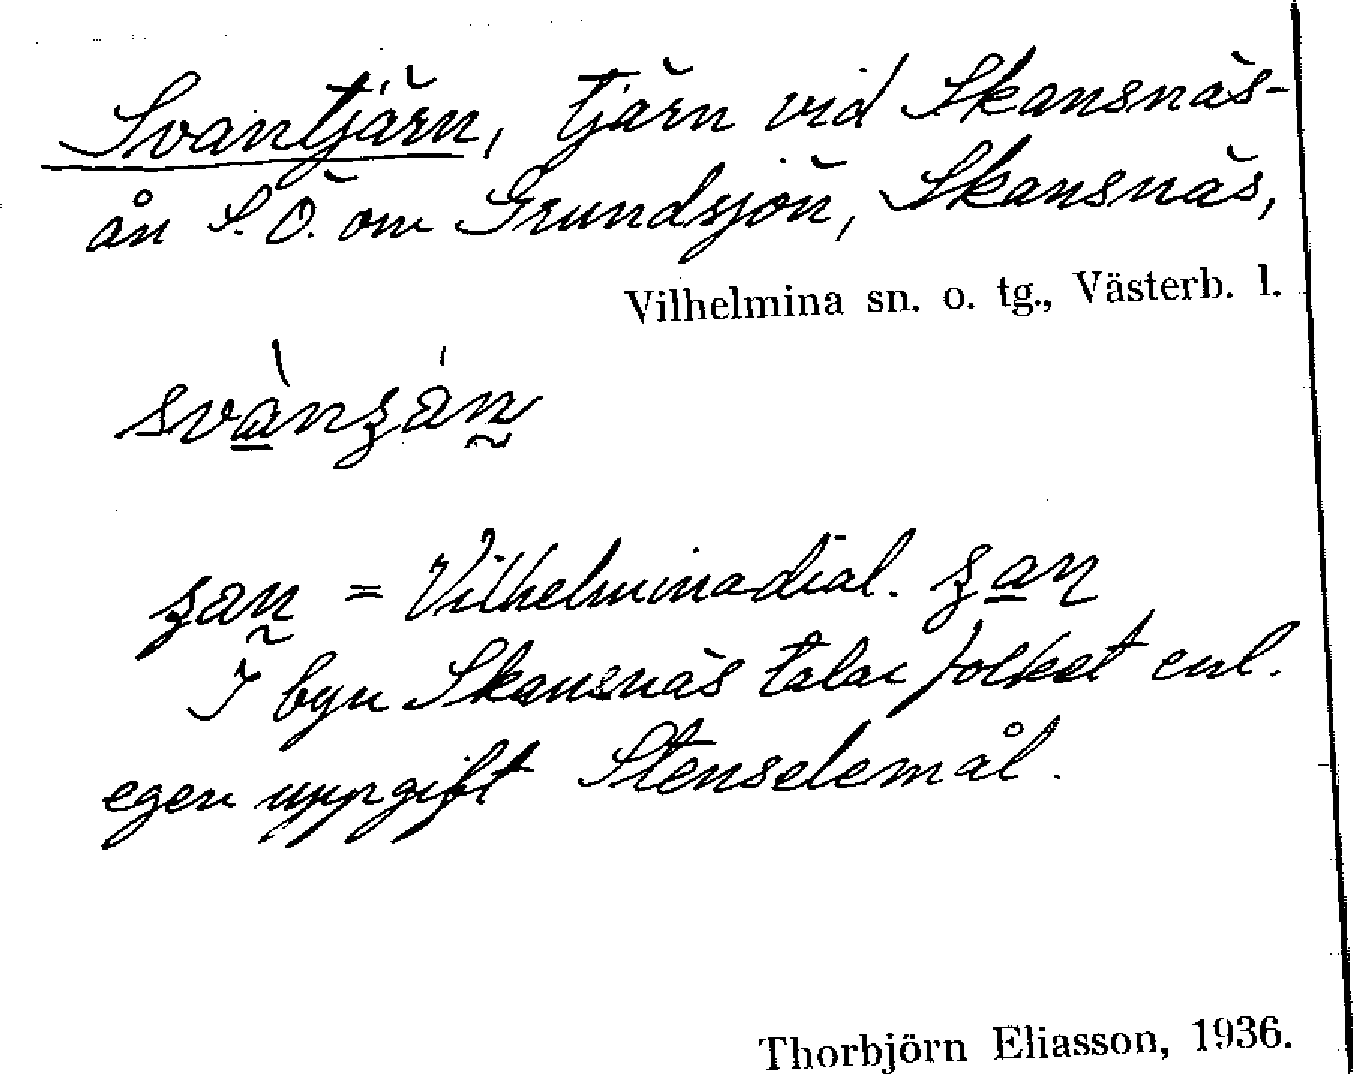 Svantjärn, tjärn vid Skansnäs-
ån S.Ö. om Grundsjön, Skansnäs,
Vilhelmina sn. o. tg., Västerb. l.
= Vilhelminadial.
I byn Skansnäs talar folket enl.
egen uppgift Stenselemål.
Thorbjörn Eliasson, 1936.